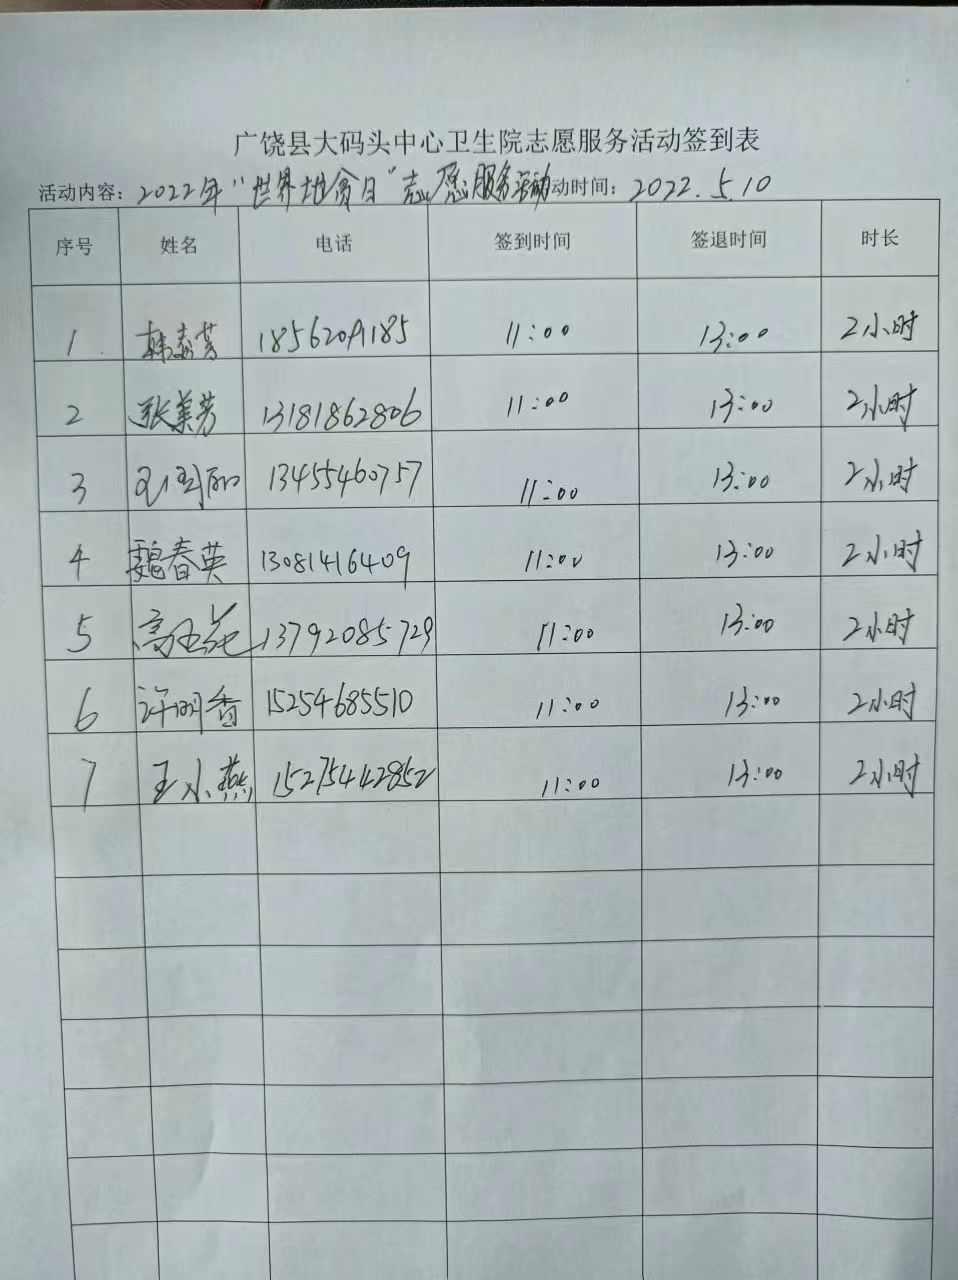 广饶县大码头中心卫生院志愿服务活动签到表
活动内容：2022年"世界地贫日"志愿服务活动 动时间：2022.5.10
序号 姓名 电话 签到时间 签退时间 时长
1 韩春芳 18562091185 11:00 13:00 2小时
2 张美芳 13181862806 11:00 13:00 2小时
3 13455460757 11:00 13:00 2小时
4 魏春英 13081416409 11:00 13:00 2小时
5 13792085729 11:00 13:00 2小时
6 许明香 15254685510 11:00 13:00 2小时
7 王小燕 15275442852 11:00 13:00 2小时